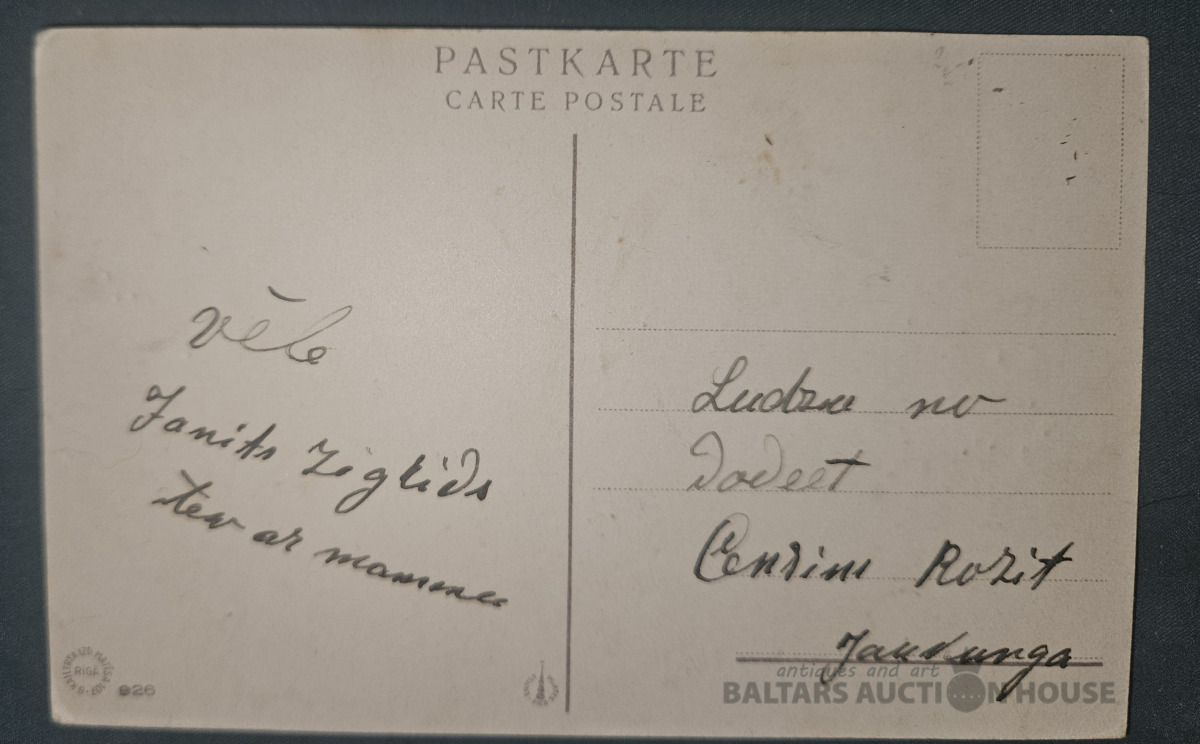 PASTKARTE
CARTE POSTALE
vēle
Janits Zigrids
tēv ar mammu
Ludzu no
dodeet
Cenzini Rozit
RĪGĀ
926
antiques and art
BALTARS AUCTION HOUSE